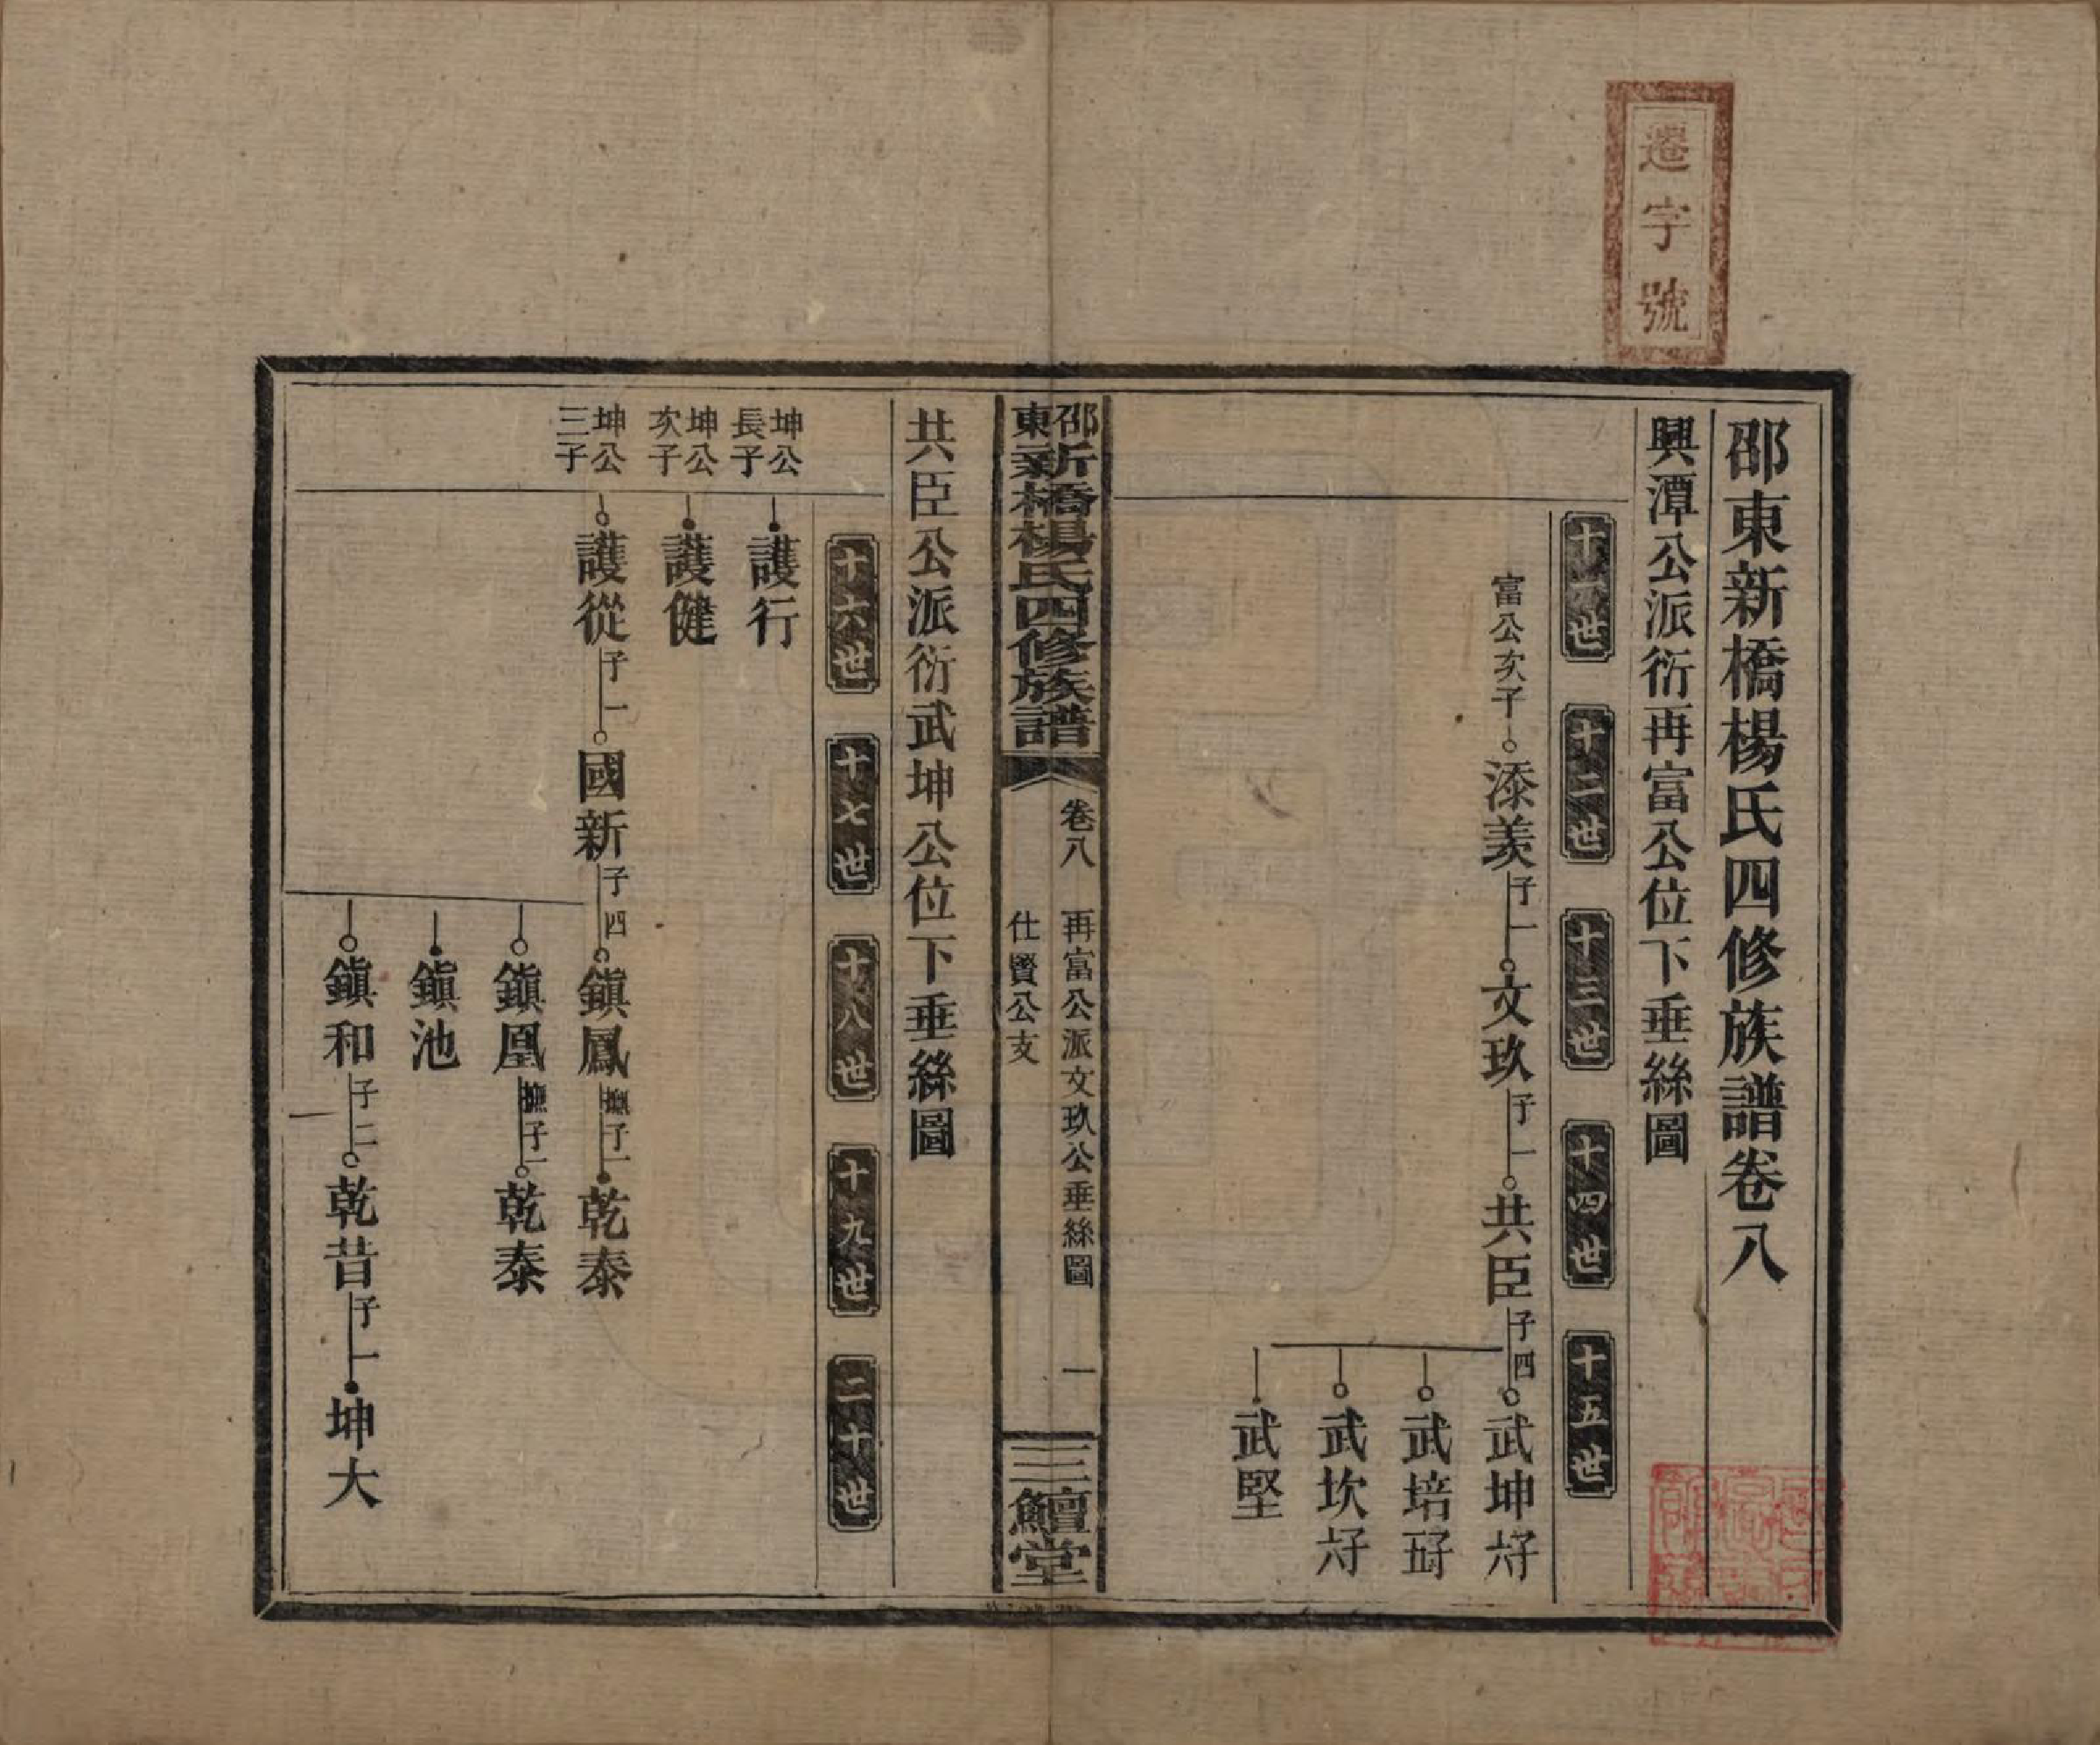 遷字號
邵東新橋楊氏四修族譜卷八
興潭公派衍再富公位下垂絲圖
十一世 十二世 十三世 十四世 十五世
富公次子 添美 子一 文玖 子一 共臣 子四 武坤 子六
武培 子四
武坎 子六
武堅
邵東新橋楊氏四修族譜 卷八 再富公派文玖公垂絲圖 一 三鱣堂
仕賢公支
共臣公派衍武坤公位下垂絲圖
十六世 十七世 十八世 十九世 二十世
坤公長子 護行
坤公次子 護健
坤公三子 護從 子一 國新 子四 鎮鳳 撫子一 乾泰
鎮凰 撫子一 乾泰
鎮池
鎮和 子二 乾昔 子一 坤大